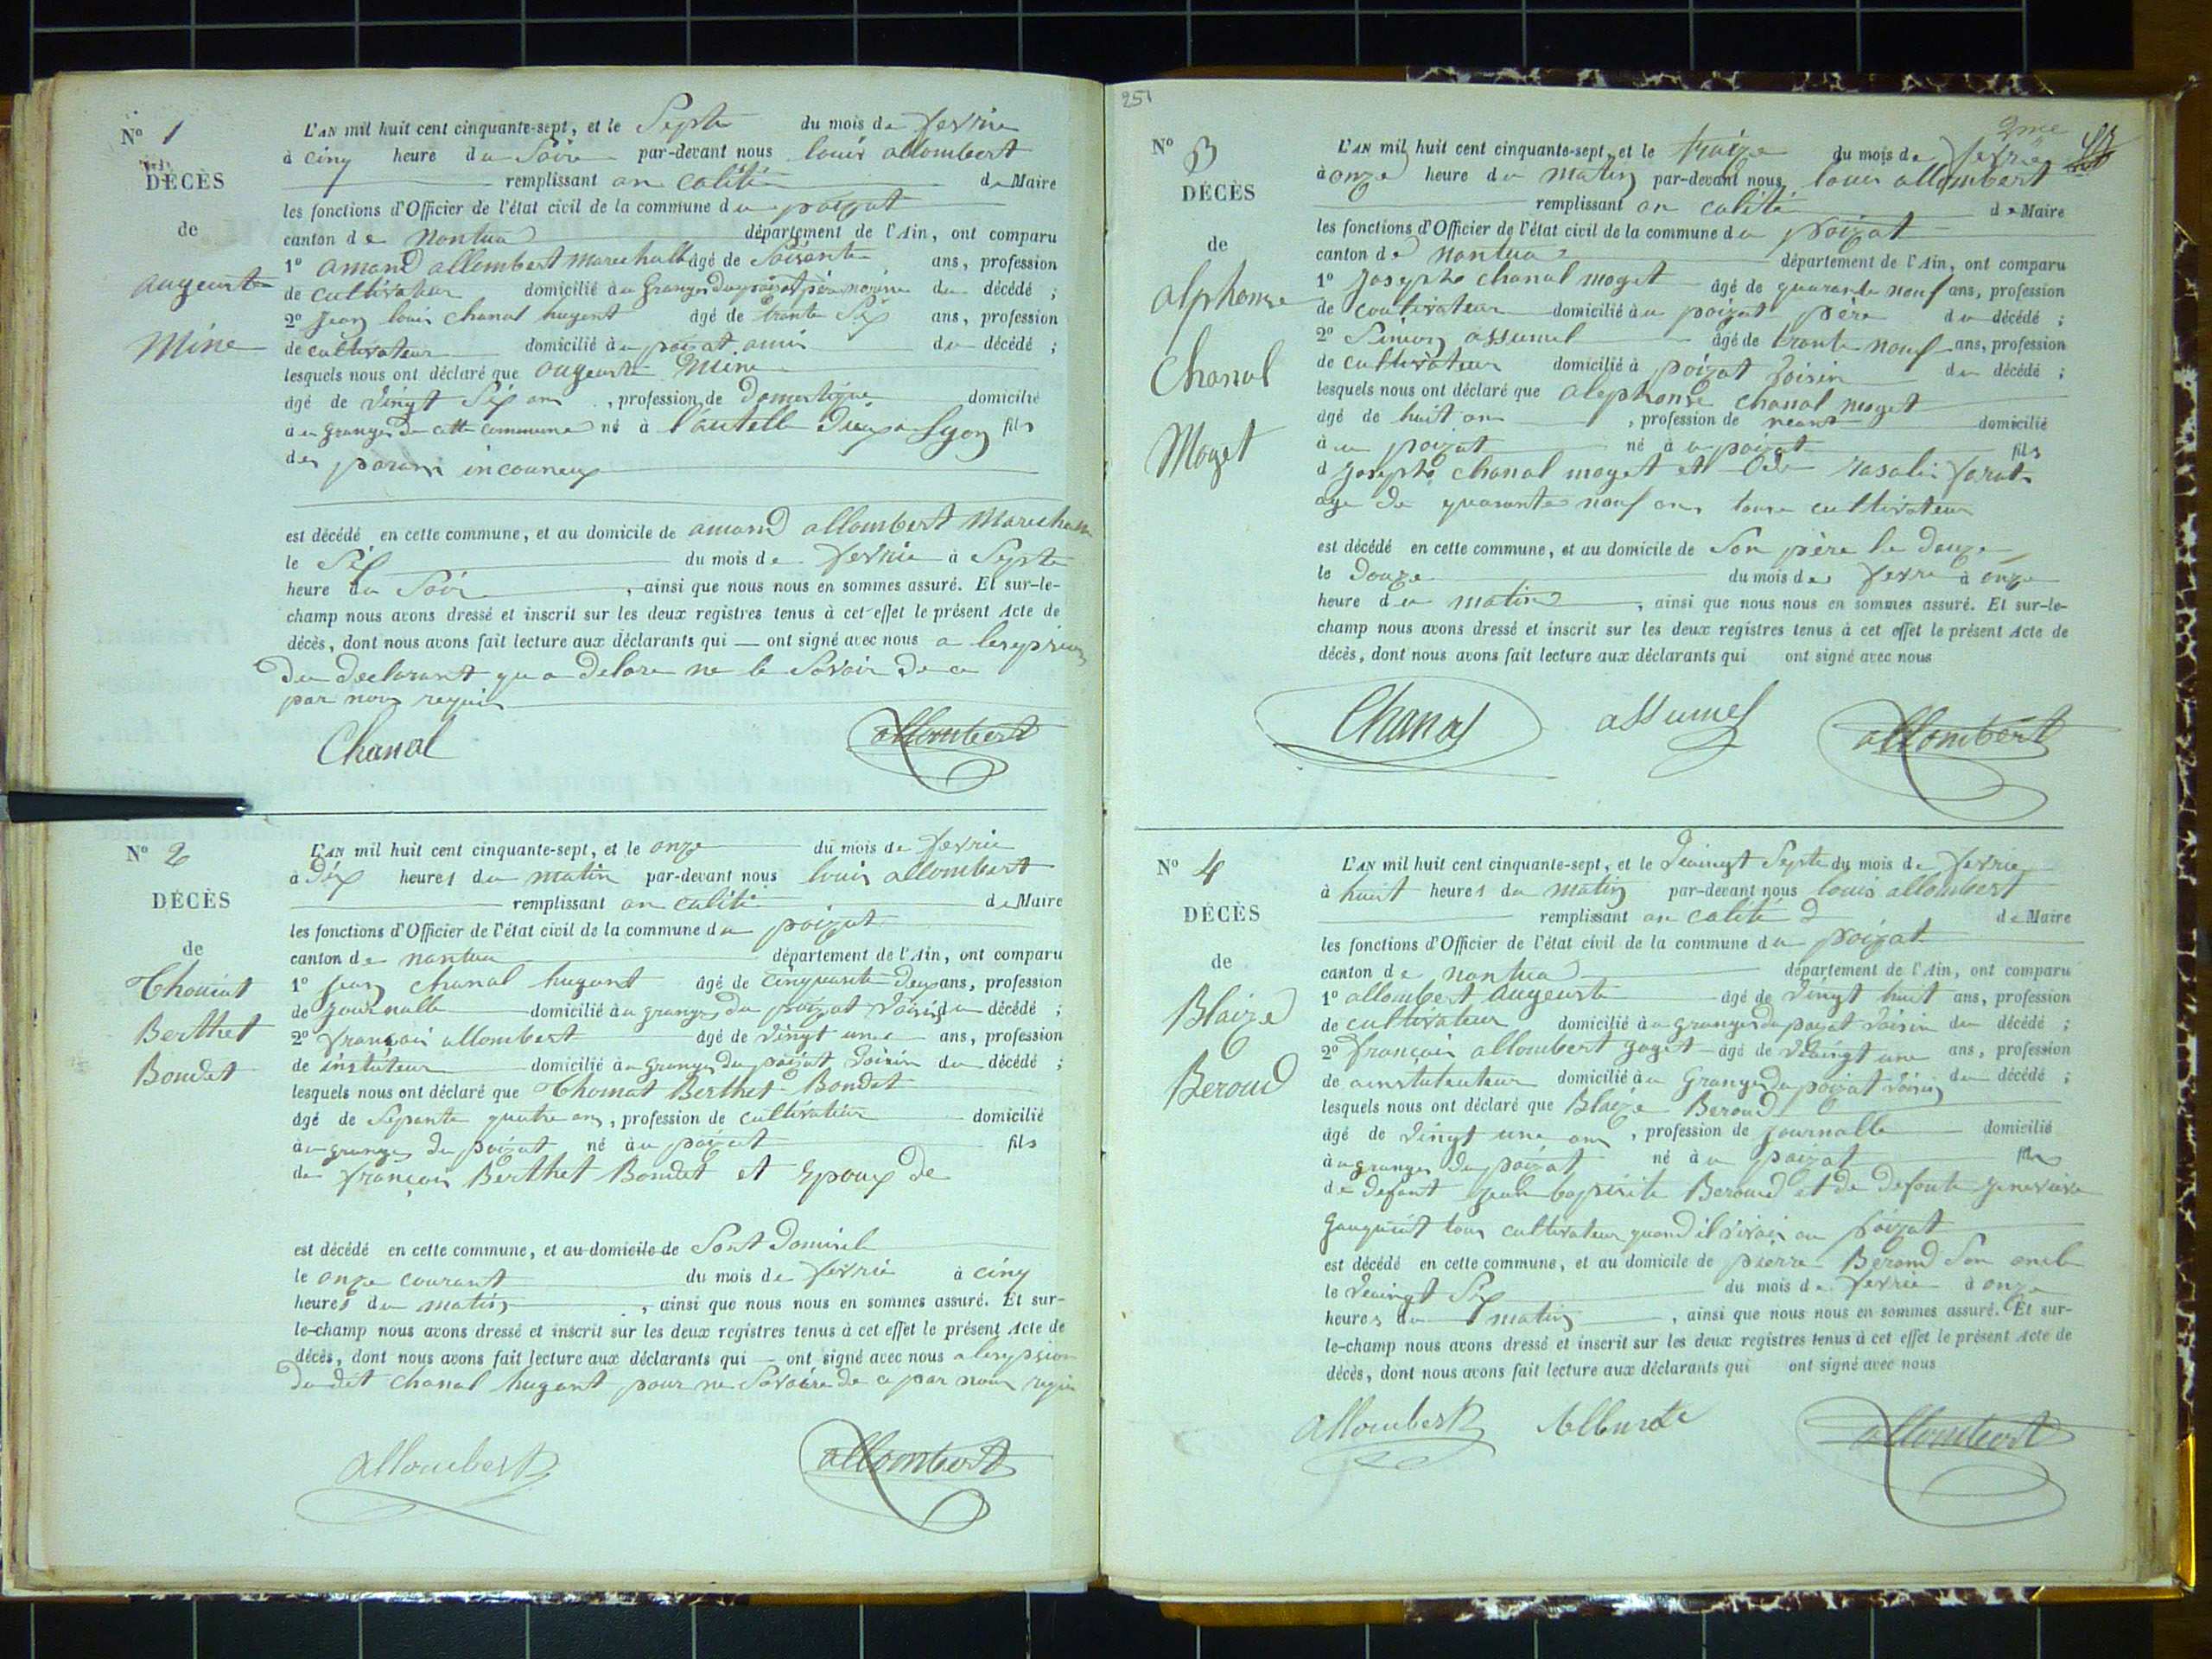 N° 1
DÉCÈS
de
augeuste
Mine
L'AN mil huit cent cinquante-sept, et le Septe du mois de fevrie
à cinq heure du Soire par-devant nous louis allombert
remplissant an calité de Maire
les fonctions d'Officier de l'état civil de la commune du poizat
canton de Nantua département de l'Ain, ont comparu
1° amand allombert marechalle âgé de Soisante ans, profession
de cultivateur domicilié au Granges du poizat du décédé ;
2° Jean louis chanal hugont âgé de trante Six ans, profession
de cultivateur domicilié au poizat amis du décédé ;
lesquels nous ont déclaré que augeuste Mine
âgé de vingt Six ans, profession de Domestique domicilié
au Granges de cette commune né à l'autelle Dieux a Lyon fils
des parans inconneux
est décédé en cette commune, et au domicile de amand allombert Marechalle
le Six du mois de fevrie à Septe
heure du Soire, ainsi que nous nous en sommes assuré. Et sur-le-
champ nous avons dressé et inscrit sur les deux registres tenus à cet effet le présent Acte de
décès, dont nous avons fait lecture aux déclarants qui — ont signé avec nous
du declarant qu a delare ne le Savoir de ce
par nous requis
Chanal allombert
N° 2
DÉCÈS
de
Thomat
Berthet
Bondet
L'AN mil huit cent cinquante-sept, et le onze du mois de fevrie
à Dix heures du matin par-devant nous louis allombert
remplissant an calité de Maire
les fonctions d'Officier de l'état civil de la commune du poizat
canton de nantua département de l'Ain, ont comparu
1° Jean chanal hugont âgé de cinquante Deux ans, profession
de journalle domicilié au granges du poizat voisin du décédé ;
2° françois allombert âgé de vingt une ans, profession
de instituteur domicilié au granges du poizat voisin du décédé ;
lesquels nous ont déclaré que Thomat Berthet Bondet
âgé de Sepante quatre ans, profession de cultivateur domicilié
au granges du poizat né au poizat fils
de françois Berthet Bondet et Epoux de
est décédé en cette commune, et au domicile de Sont Domicile
le onze courant du mois de fevrie à cinq
heures du matin, ainsi que nous nous en sommes assuré. Et sur-
le-champ nous avons dressé et inscrit sur les deux registres tenus à cet effet le présent Acte de
décès, dont nous avons fait lecture aux déclarants qui — ont signé avec nous
du dit chanal hugont pour ne Savoire de ce par nous requis
allombert allombert
251
2me
N° 3
DÉCÈS
de
alphonse
Chanal
Moget
L'AN mil huit cent cinquante-sept, et le traize du mois de fevrie
à onze heure du matin par-devant nous louis allombert
remplissant an calité de Maire
les fonctions d'Officier de l'état civil de la commune du poizat
canton de nantua département de l'Ain, ont comparu
1° Josephe chanal moget âgé de quarante neuf ans, profession
de coultivateur domicilié au poizat père du décédé ;
2° Simon assumel âgé de trante neuf ans, profession
de cultivateur domicilié à poizat voisin du décédé ;
lesquels nous ont déclaré que alephonse chanal moget
âgé de huit ans, profession de neant domicilié
à au poizat né à au poizat fils
d Josephe chanal moget et rasalie
age de quarante neuf ans tous cultivateur
est décédé en cette commune, et au domicile de Son père le douze
le Douze du mois de fevrie à onze
heure du matin, ainsi que nous nous en sommes assuré. Et sur-le-
champ nous avons dressé et inscrit sur les deux registres tenus à cet effet le présent Acte de
décès, dont nous avons fait lecture aux déclarants qui ont signé avec nous
Chanal assumel allombert
N° 4
DÉCÈS
de
Blaize
Beroud
L'AN mil huit cent cinquante-sept, et le veingt Septe du mois de fevrie
à huit heures du matin par-devant nous louis allombert
remplissant an calité de Maire
les fonctions d'Officier de l'état civil de la commune du poizat
canton de nantua département de l'Ain, ont comparu
1° allombert augeuste âgé de vingt huit ans, profession
de cultivateur domicilié au granges du poizat voisin du décédé ;
2° françois allombert goget âgé de veingt une ans, profession
de domicilié au Granges du poizat voisin du décédé ;
lesquels nous ont déclaré que Blaize Beroud
âgé de vingt une ans, profession de journalle domicilié
à au granges du poizat né à au poizat fils
de defant jean Beroud et de defunte
tous cultivateur quand il vivais au poizat
est décédé en cette commune, et au domicile de pierre Beroud Son oncle
le veingt Six du mois de fevrie à onze
heures du matin, ainsi que nous nous en sommes assuré. Et sur-
le-champ nous avons dressé et inscrit sur les deux registres tenus à cet effet le présent Acte de
décès, dont nous avons fait lecture aux déclarants qui ont signé avec nous
allombert allombert